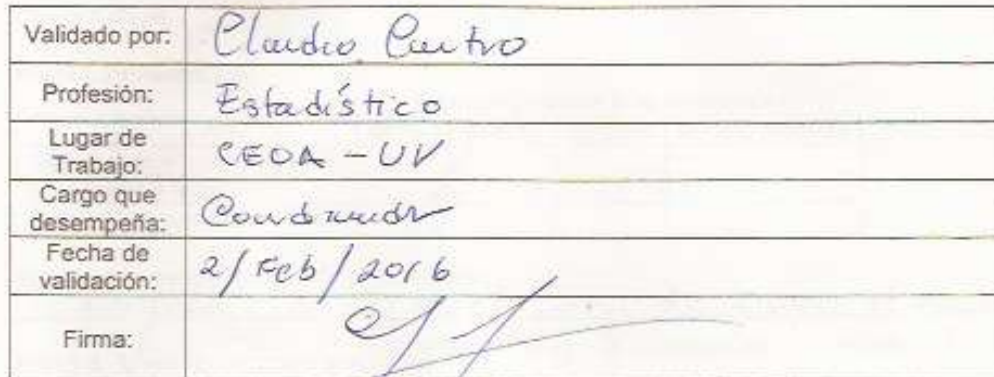 Validado por: Claudio Castro
Profesión: Estadístico
Lugar de
Trabajo: CEOA - UV
Cargo que
desempeña: Coordinador
Fecha de
validación: 2/Feb/2016
Firma: